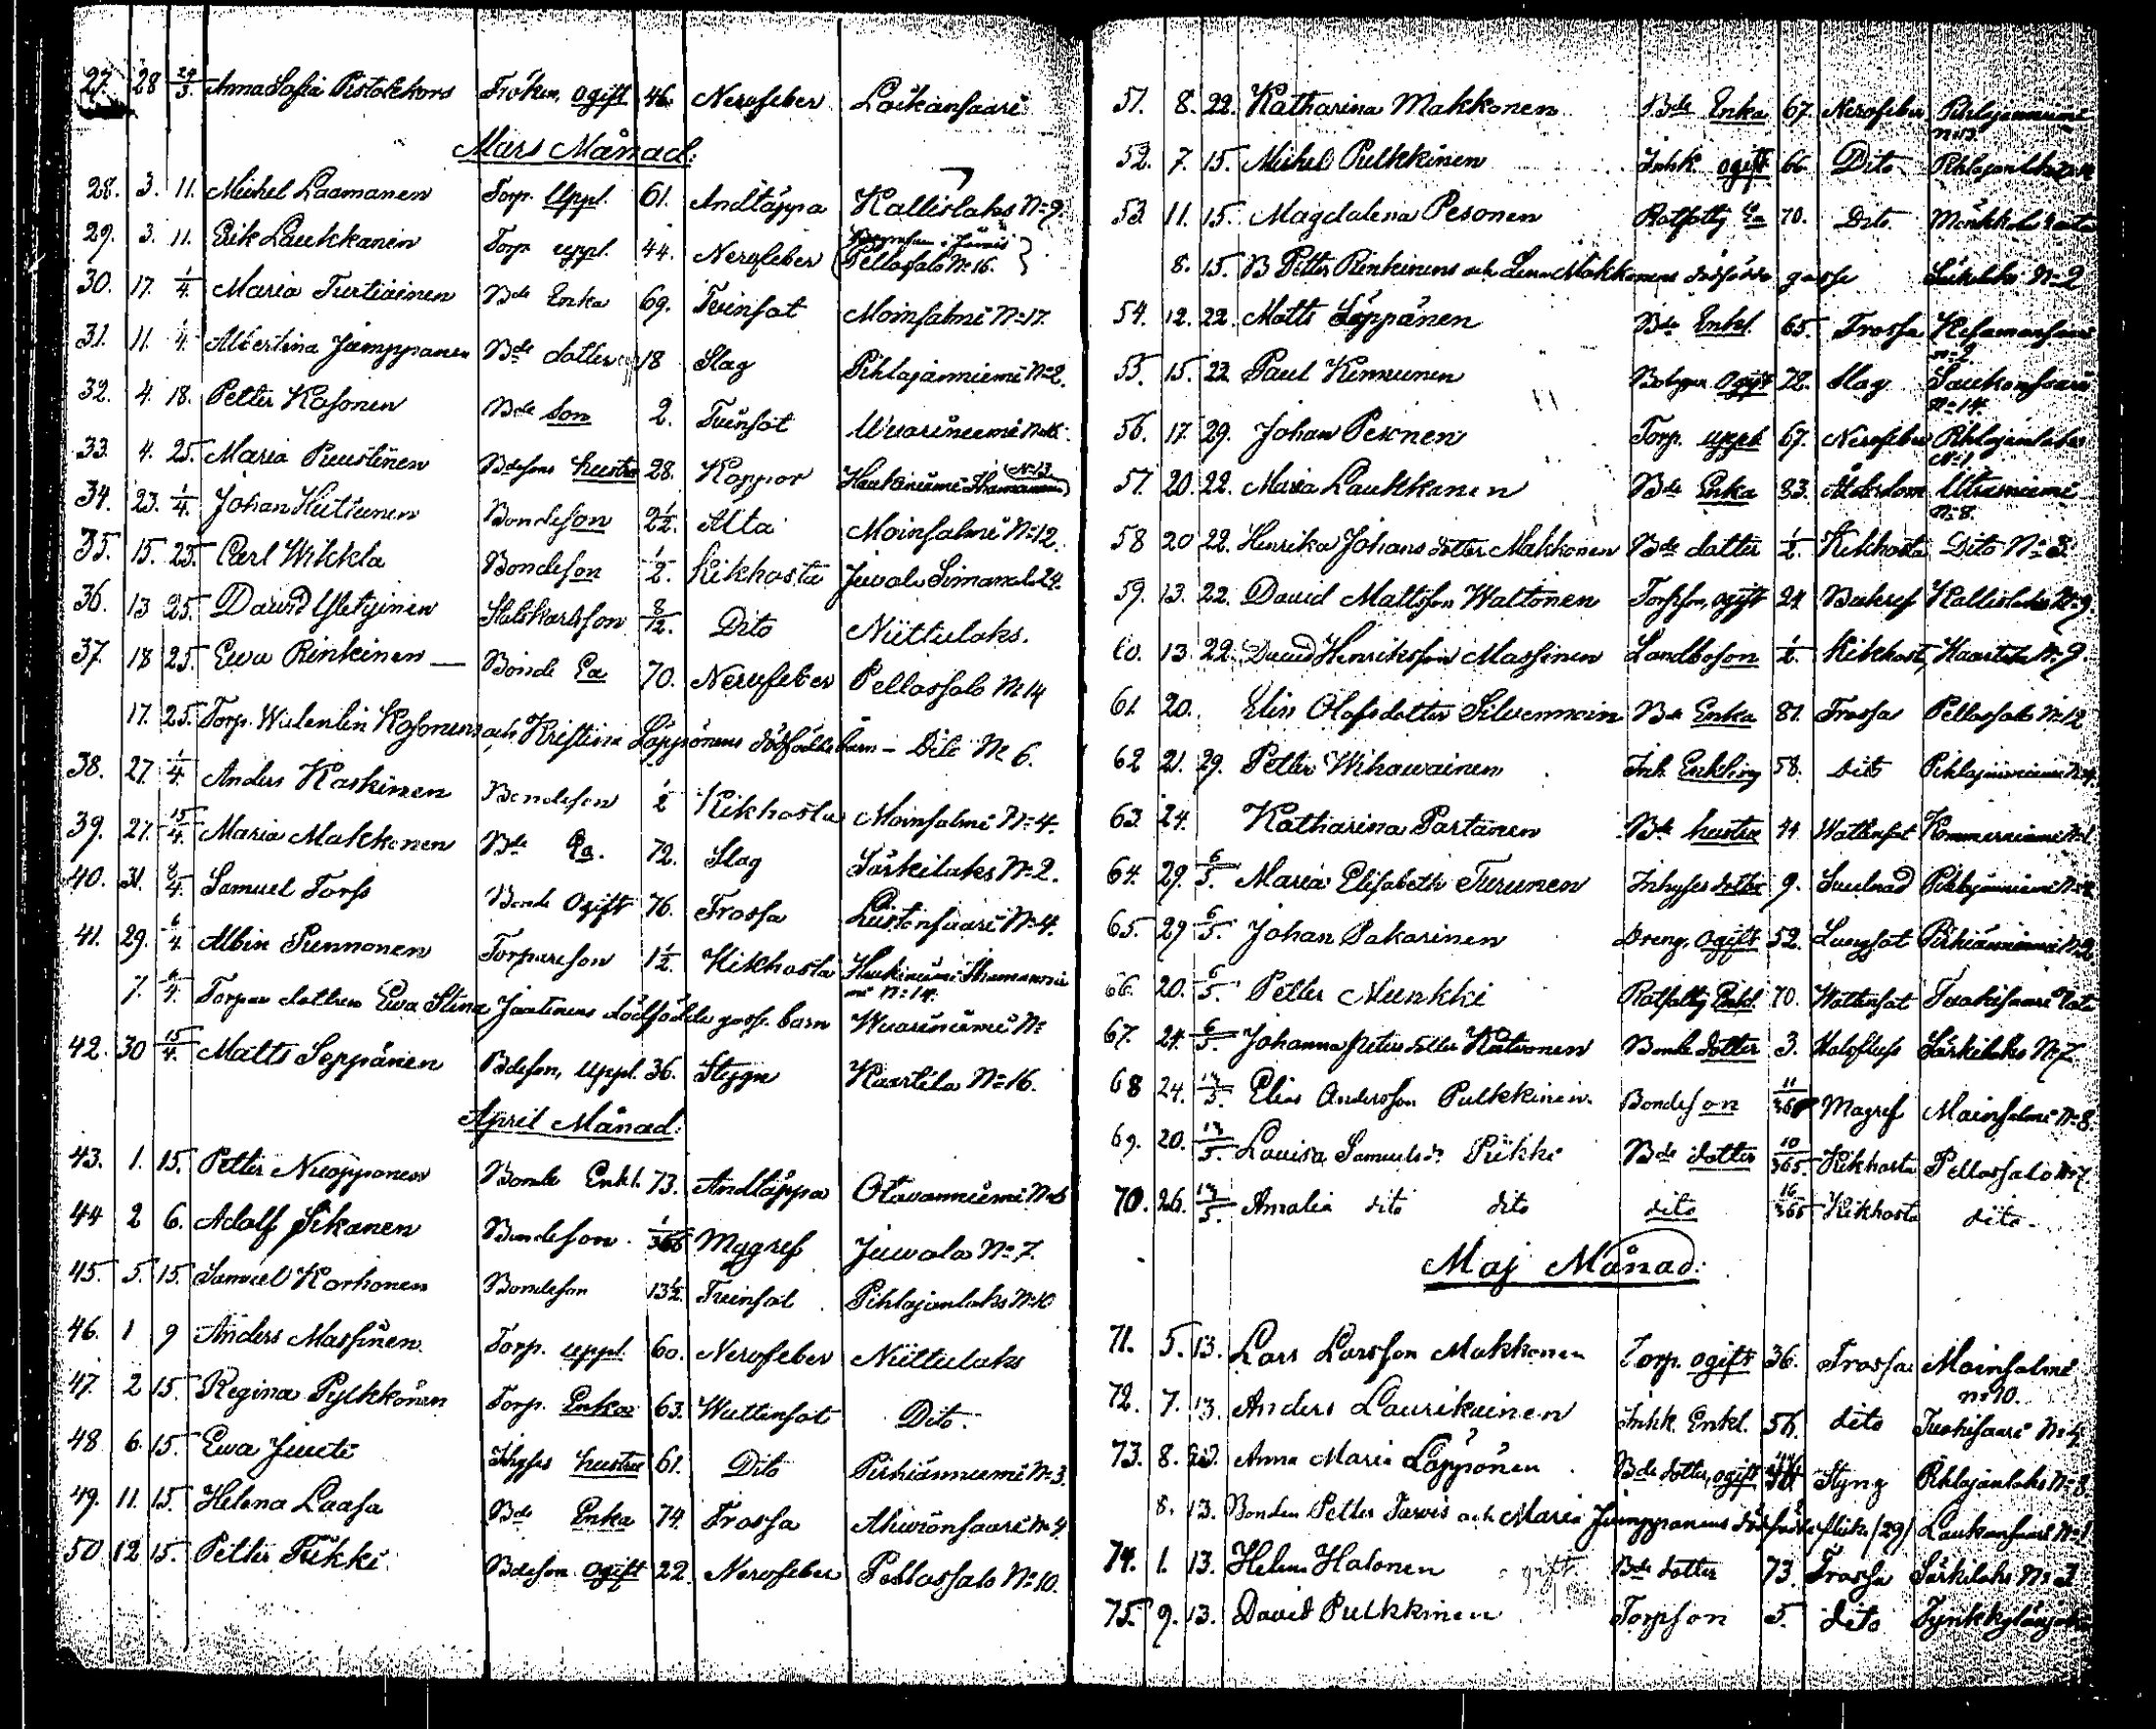 27. 28 24/3 Anna Sofia Pistolekors Fröken, ogift 46. Nervfeber Loikansaari
Mars Månad:
28. 3. 11. Michel Laamanen Torp. Uppl. 61. Andtäppa Kallislaks N=9.
29. 3. 11. Erik Laukkanen Torp. uppl. 44. Nervfeber Pellossalo N=16.
30. 17. 1/4. Maria Turtiainen Bde Enka 69. Tvinsot Moinsalmi N=17.
31. 11. 1/4. Albertina Jumppanen Bde dotter 18 Slag Pihlajaniemi N=2.
32. 4. 18. Petter Kosonen Bde Son 2. Tvinsot Wuoriniemi
33. 4. 25. Maria Puustinen Bdesons hustru 28. Koppor Haukiniemi N=13
34. 23. 1/4. Johan Hiltunen Bondeson 2 1/2. Älta Moinsalmi N=12.
35. 15. 25. Carl Wikkla Bondeson 1/2. Kikhosta Juvola 24.
36. 13 25. David 8/12. Dito Niittulaks.
37. 18 25. Ewa Rinkinen — Bonde Ea 70. Nervfeber Pellossalo N 14
17. 25. Torp. Kosonens och Kristina Löppönens dödfödda barn — Dito N 6.
38. 27. 1/4. Anders Kaskinen Bondeson 1/2 Kikhosta Moinsalmi N=4.
39. 27. 15/4. Maria Makkonen Bde Ea. 72. Slag Särkilaks N=2.
40. 31. 8/4. Samuel Torss Bonde Ogift 76. Trossa Liistonsaari N=4.
41. 29. 6/4 Albin Sunnonen Torpareson 1 1/2. Kikhosta Haukiniemi N=14.
7. 6/4. Torpar dottren Ewa Stina Jantinens dödfödde gosse barn Wuoriniemi N=
42. 30 15/4. Matts Seppänen Bdeson, uppl. 36. Stygn Kaartila N=16.
April Månad:
43. 1. 15. Petter Nuopponen Bonde Enkl. 73. Andtäppa Otavanniemi N=6
44 2 6. Adolf Sikanen Bondeson. 1/365 Magref Juvola N=7.
45. 5. 15. Samuel Korhonen Bondeson 13 1/2. Tvinsot Pihlajanlaks N=10
46. 1 9 Anders Massinen Torp. uppl. 60. Nervfeber Niittulaks
47. 2 15. Regina Pylkkönen Torp. Enka 63. Wattensot Dito.
48 6. 15. Ewa Juuti Inhyses hustru 61. Dito Pirhiänniemi N=3.
49. 11. 15. Helena Laasa Bde Enka 74. Trossa Ahvionsaari N=4.
50. 12 15. Petter Piikki Bdeson ogift 22. Nervfeber Pellossalo N=10.
51. 8. 22. Katharina Makkonen Bde Enka 67. Nervfeber Pihlajaniemi
52. 7. 15. Michel Pulkkinen Inhk. ogift 66 Dito Pihlajanlaks
53. 11. 15. Magdalena Pesonen Rotfattig Ea 70. Dito Mönkkölä rota
8. 15. B Petter Rinkinens och Lena Makkonens dödfödde gosse Särkilaks N=2
54. 12. 22. Matts Löppänen Bde Enkl. 65. Trossa N=2
55. 15. 22 Paul Kinnunen Ogift 72. Slag Laukansaari N=14.
56. 17. 29. Johan Pesonen Torp. uppl. 67. Nervfeber Pihlajanlaks N=1
57. 20. 22. Maria Laukkanen Bde Enka 83. Ålderdom Utriniemi N=8.
58 20 22. Henrika Johans dotter Makkonen Bde dotter 1/2. Kikhosta Dito N=3.
59. 13. 22. David Mattsson Waltonen Torpson, ogift 24 Bukref Kallislaks N=9
60. 13 22. David Henriksson Massinen Landboson 1/2. Kikhosta Kaartila N=9.
61. 20. Elin Olofsdotter Silvennoin Bde Enka 81. Trossa Pellossalo N=12
62 21. 29. Petter Wihavainen Inh. Enkling 58. dito Pihlajaniemi N=4.
63. 24. Katharina Partanen Bde hustru 44. Wattensot Kommerniemi N=1.
64. 29. 6/5. Maria Elisabeth Turunen Inhyses dotter 9. Pihlajaniemi
65. 29 6/5. Johan Pakarinen Dreng, ogift 52. Lungsot Pirhiänniemi N=2
66. 20. 6/5. Petter Munkki Rotfattig Enkl. 70. Wattensot Tuohisaari rote
67. 24. 6/5. Johanna Petersdotter Kativonen Bonde dotter 3. Halsfluss Särkilaks N=7.
68 24. 13/5. Elias Andersson Pulkkinen Bondeson 11/365 Magref Moinsalmi N=8.
69. 20. 13/5. Lovisa Samuelsdr Piikki Bde dotter 10/365. Kikhosta Pellossalo N=7.
70. 26. 13/5. Amalia dito dito dito 16/365 Kikhosta dito.
Maj Månad:
71. 5. 13. Lars Larsson Makkonen Torp. ogift 36. Trossa Moinsalmi N=10.
72. 7. 13. Anders Laurikainen Inhk. Enkl. 56. dito Tuohisaari N=4.
73. 8. 23. Anna Maria Löppönen Bde dotter, ogift Styng Pihlajanlaks N=8.
8. 13. Bonden Petter Parvis och Maria Jumppanens dödfödda flicka (29) Laukansaari N=1
74. 1. 13. Helena Halonen ogift Bde dotter 73. Trossa Särkilaks N=3
75. 9. 13. David Pulkkinen Torpson 5. dito